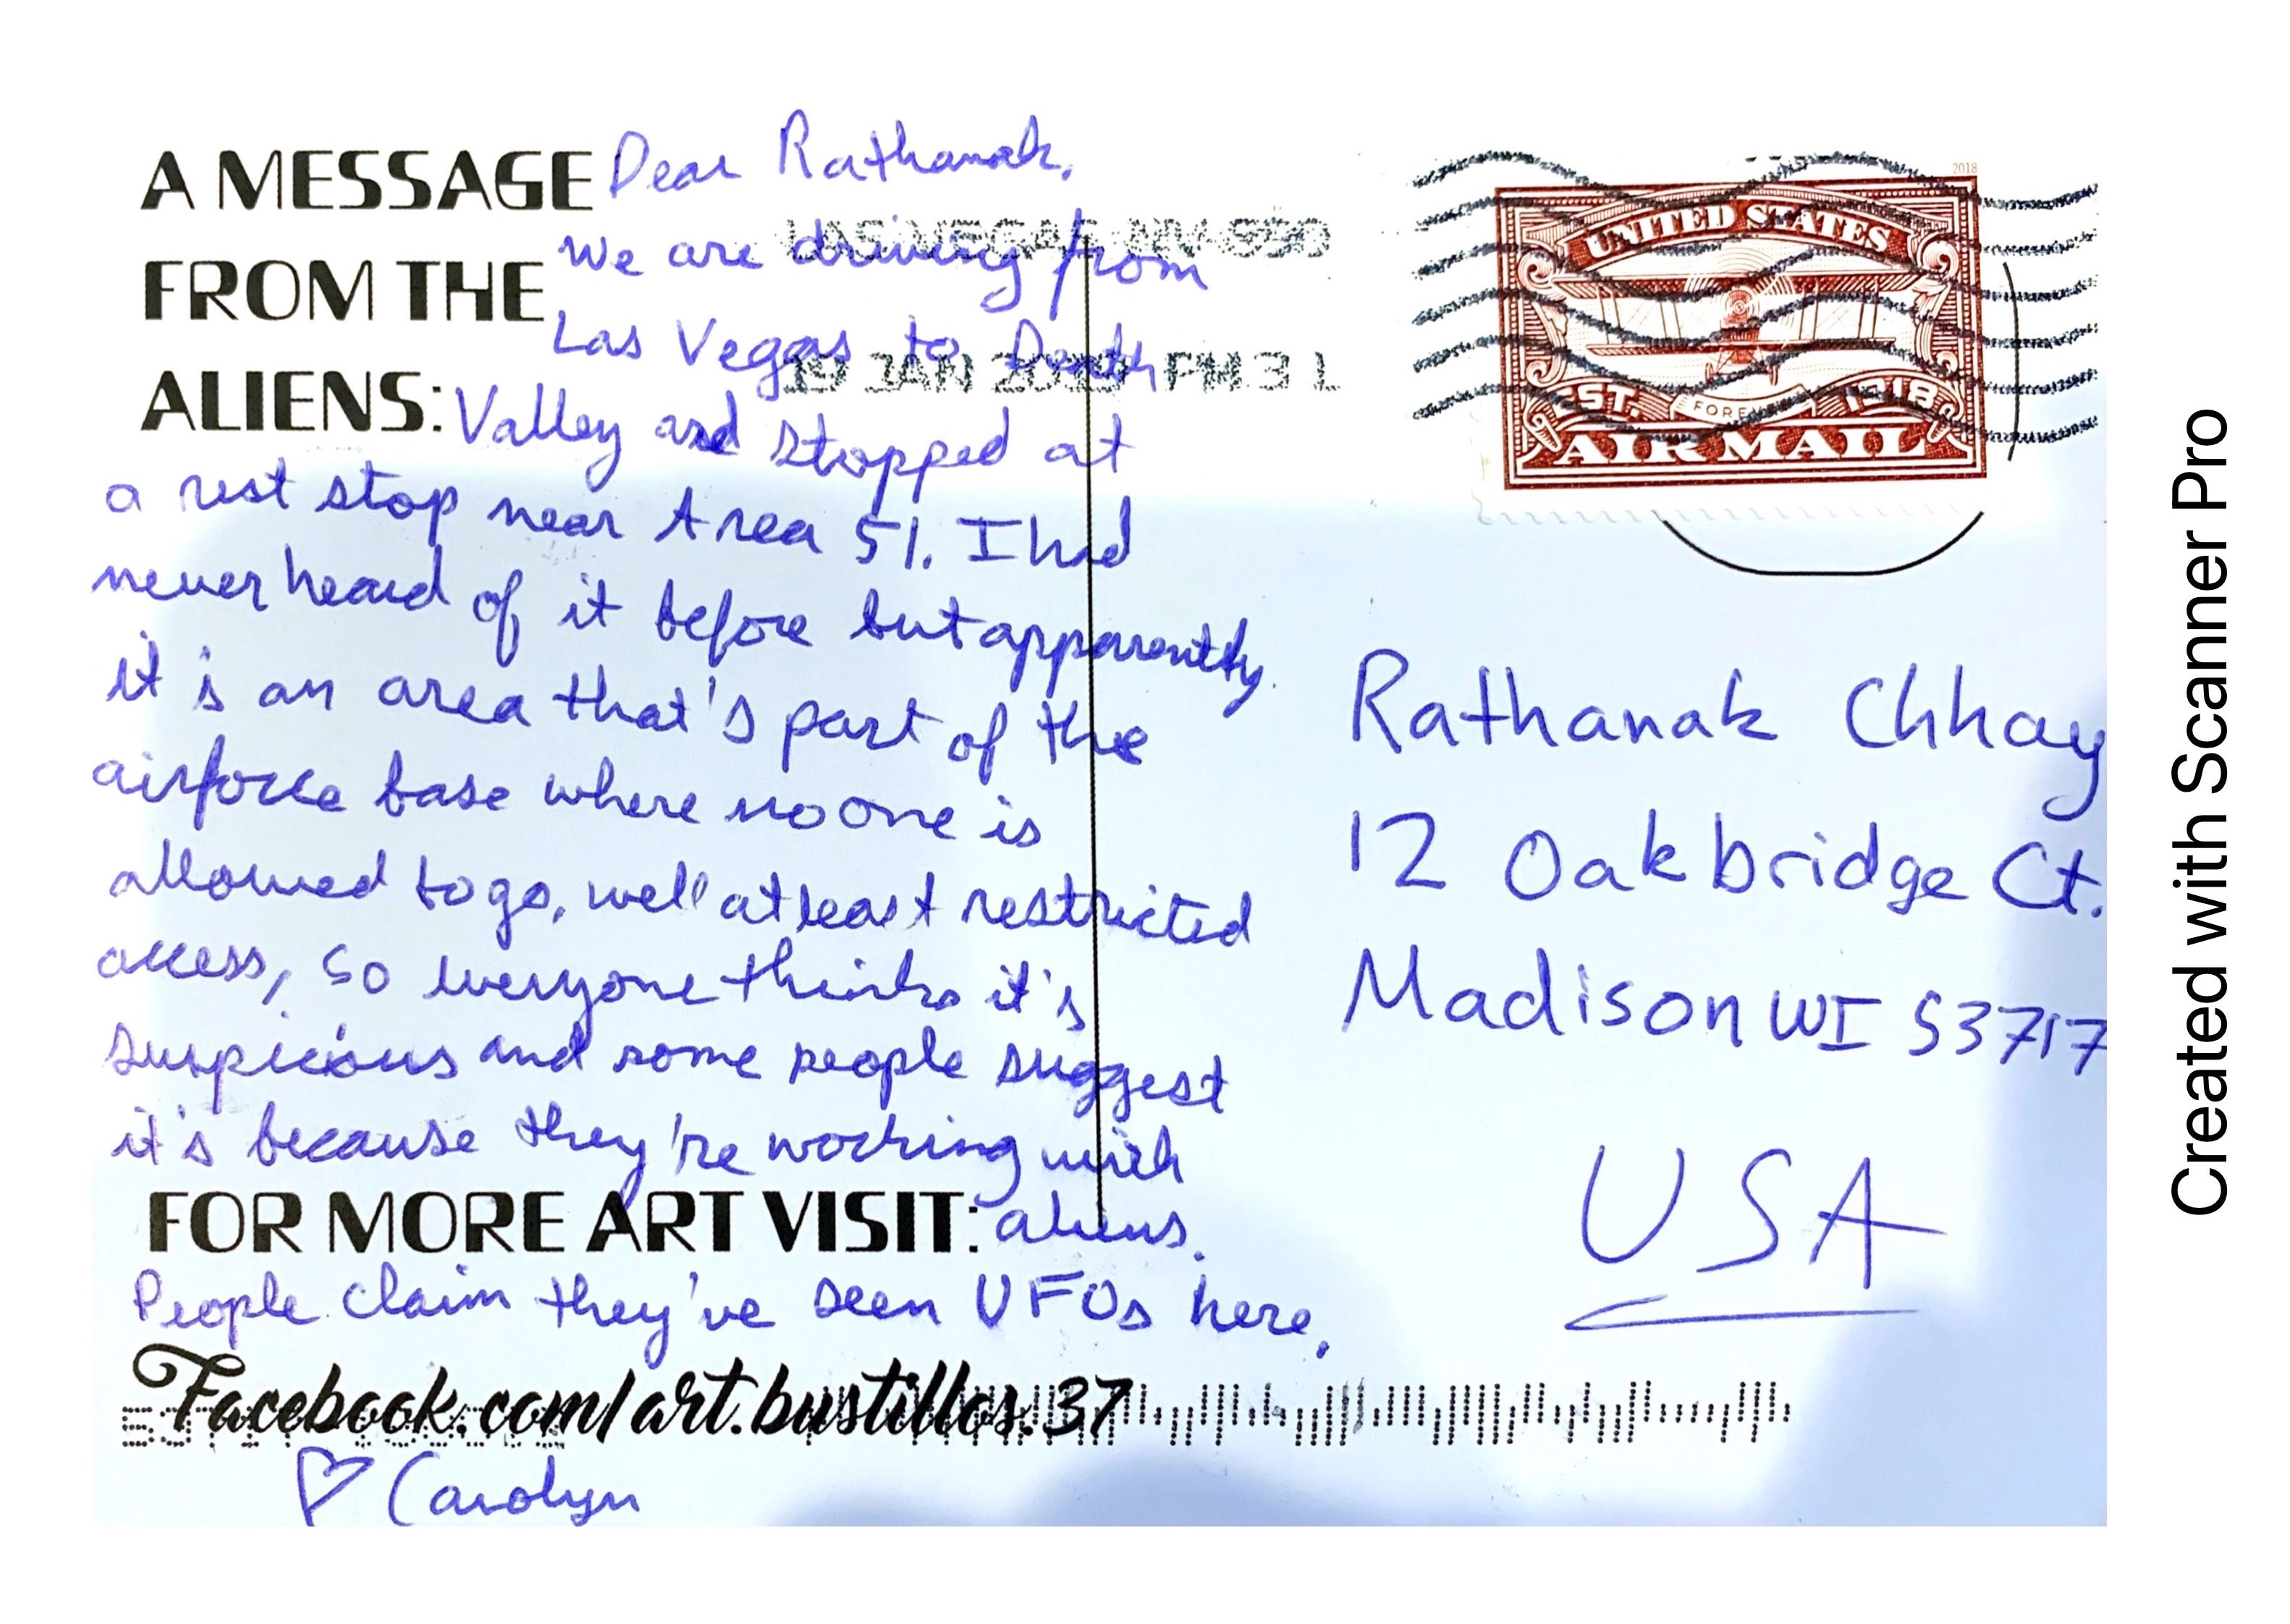 A MESSAGE Dear Rathanak,
LAS VEGAS NV 890
FROM THE We are driving from
Las Vegas to Death
19 JAN PM 3 L
ALIENS: Valley and stopped at
a rest stop near Area 51. I had
never heard of it before but apparently
it is an area that's part of the
airforce base where no one is
allowed to go, well at least restricted
access, so everyone thinks it's
suspicious and some people suggest
it's because they're working with
FOR MORE ART VISIT: aliens.
People claim they've seen UFOs here.
Facebook.com/art.bustillos.37
♡ Carolyn
2018
UNITED STATES
EST. 1918
FOREVER
AIR MAIL
Rathanak Chhay
12 Oakbridge Ct.
Madison WI 53717
USA
Created with Scanner Pro